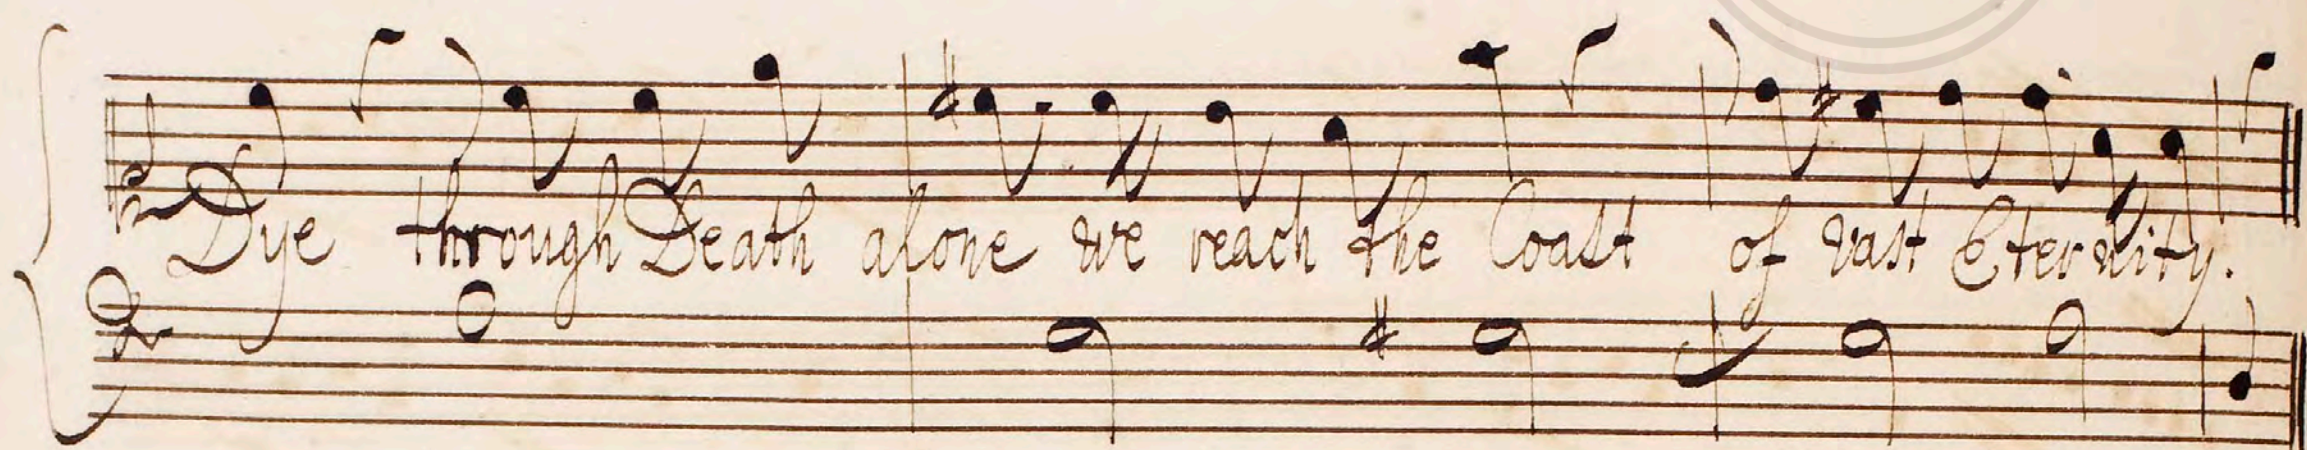 Dye through Death alone we reach the Coast of vast Eternity.